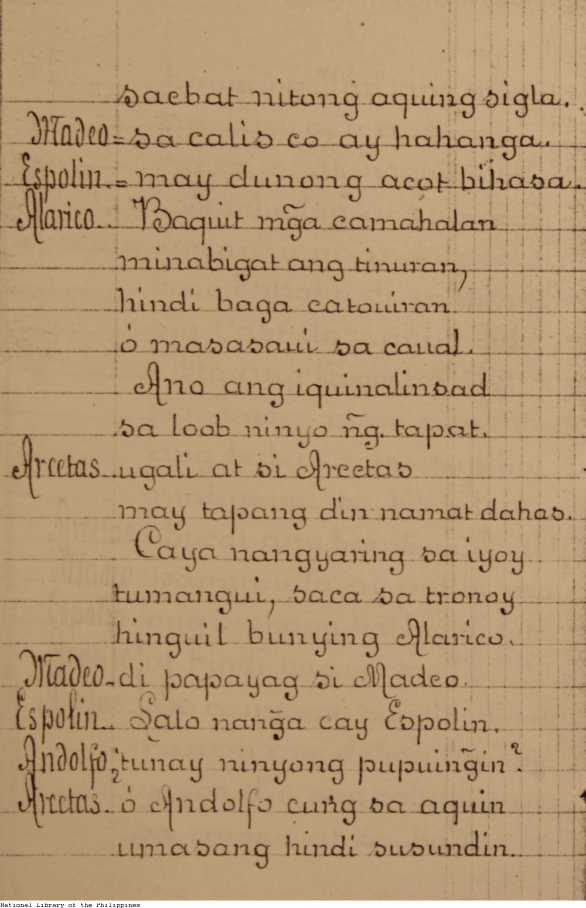 saebat nitong aquing sigla.
Madeo = sa calis co ay hahanga.
Espolin. = may dunong acot bihasa.
Alarico.. Baquit mg̃a camahalan
minabigat ang tinuran,
hindi baga catouiran
ó masasaui sa caual.
Ano ang iquinalinsad
sa loob ninyo ñg. tapat.
Arcetas ugali at si Arcetas
may tapang din namat dahas.
Caya nangyaring sa iyoy
tumangui, saca sa tronoy
hinguil bunying Alarico.
Madeo - di papayag si Madeo.
Espolin.. Salo nang̃a cay Espolin.
Andolfo, ¿tunay ninyong pupuing̃in?
Arcetas. ó Andolfo cung sa aquin
umasang hindi susundin.
National Library of the Philippines